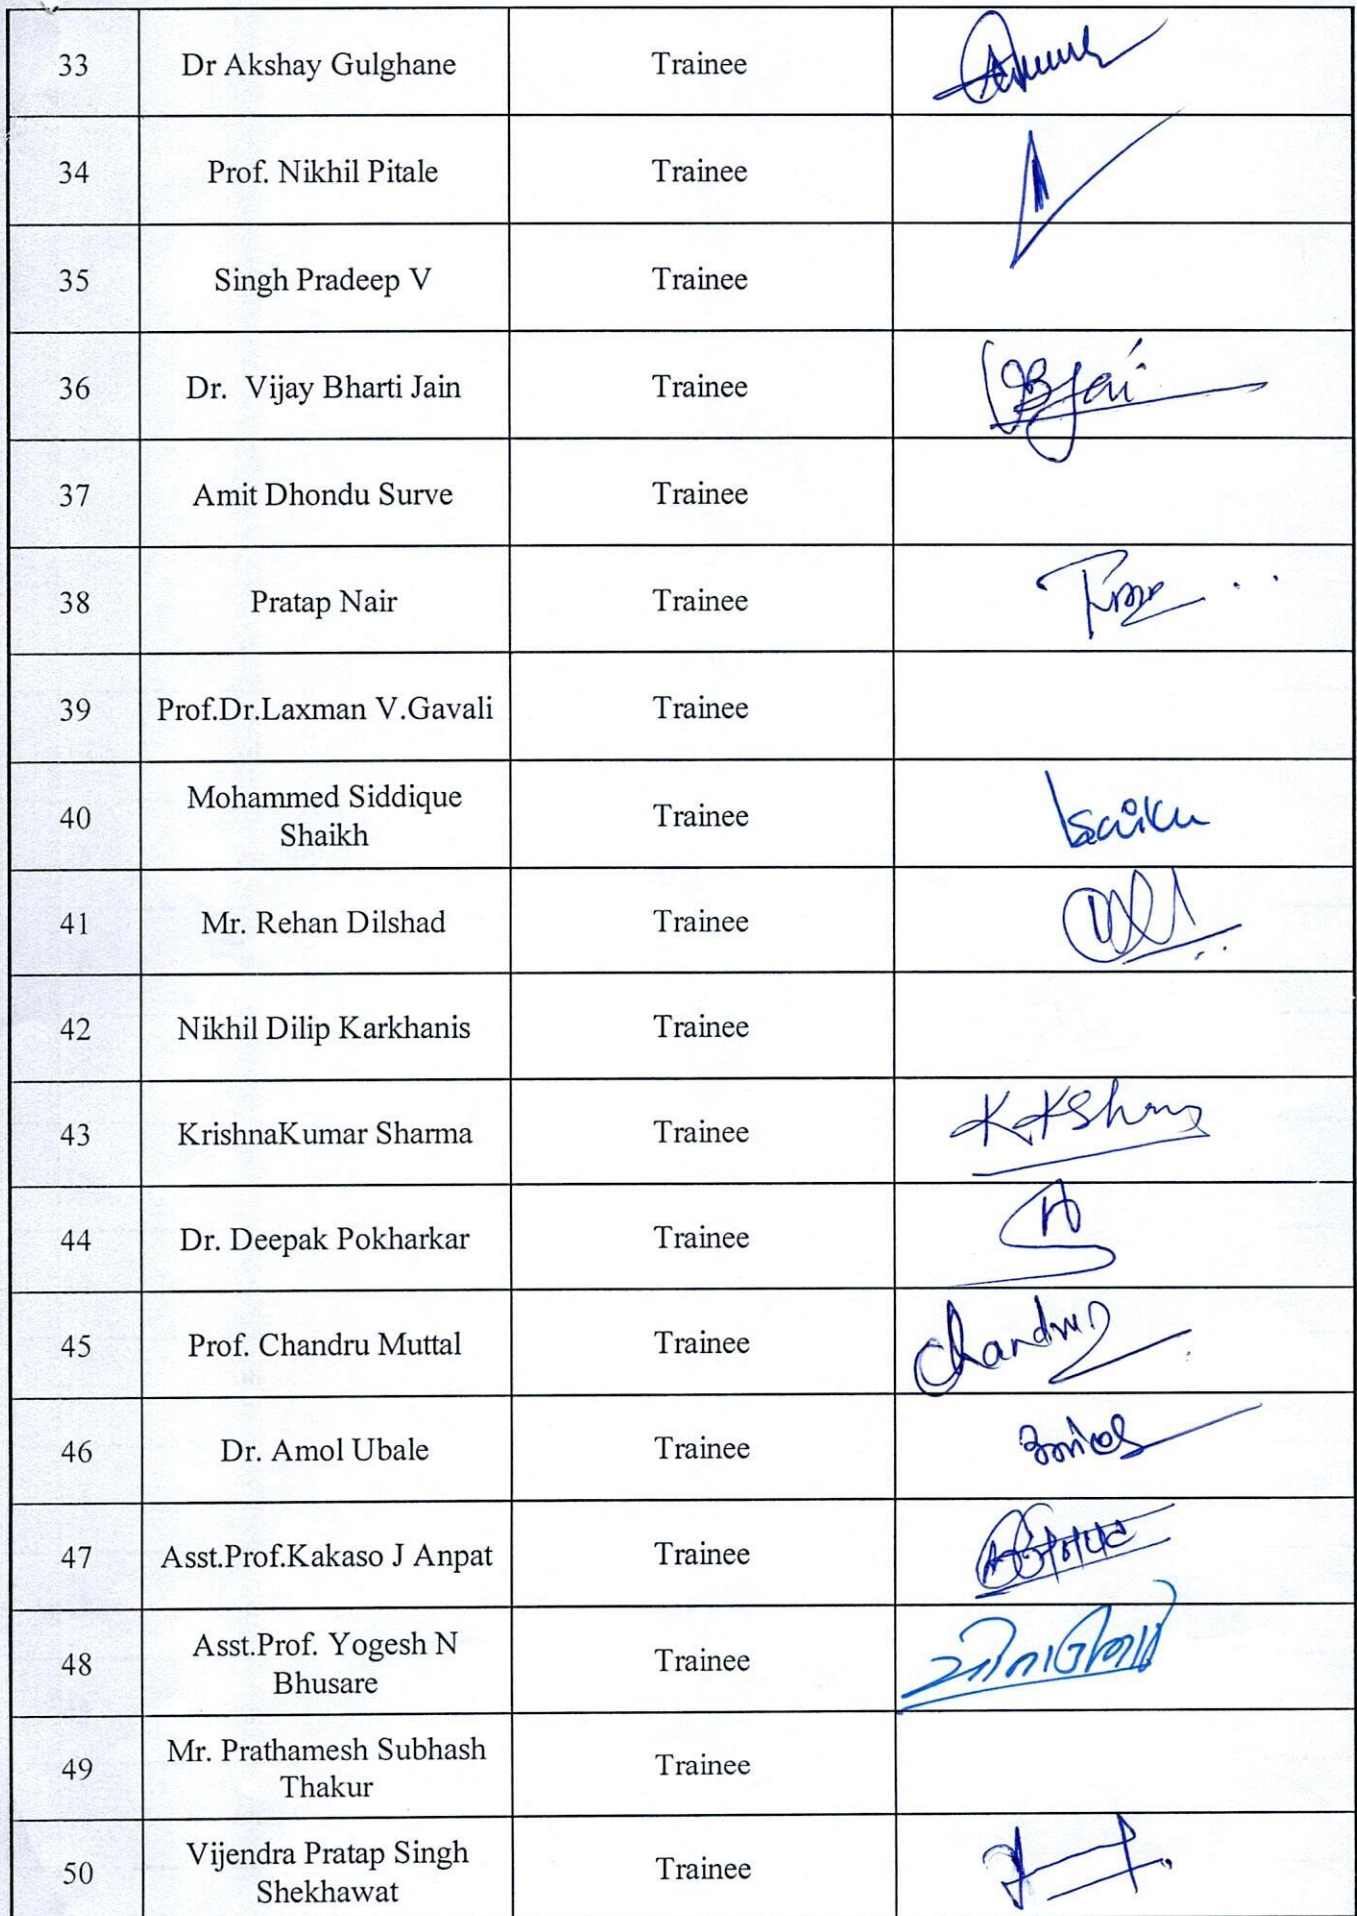 33 Dr Akshay Gulghane Trainee
34 Prof. Nikhil Pitale Trainee
35 Singh Pradeep V Trainee
36 Dr. Vijay Bharti Jain Trainee
37 Amit Dhondu Surve Trainee
38 Pratap Nair Trainee
39 Prof.Dr.Laxman V.Gavali Trainee
40 Mohammed Siddique Trainee
Shaikh
41 Mr. Rehan Dilshad Trainee
42 Nikhil Dilip Karkhanis Trainee
43 KrishnaKumar Sharma Trainee
44 Dr. Deepak Pokharkar Trainee
45 Prof. Chandru Muttal Trainee Chandru
46 Dr. Amol Ubale Trainee
47 Asst.Prof.Kakaso J Anpat Trainee
48 Asst.Prof. Yogesh N Trainee
Bhusare
49 Mr. Prathamesh Subhash Trainee
Thakur
50 Vijendra Pratap Singh Trainee
Shekhawat